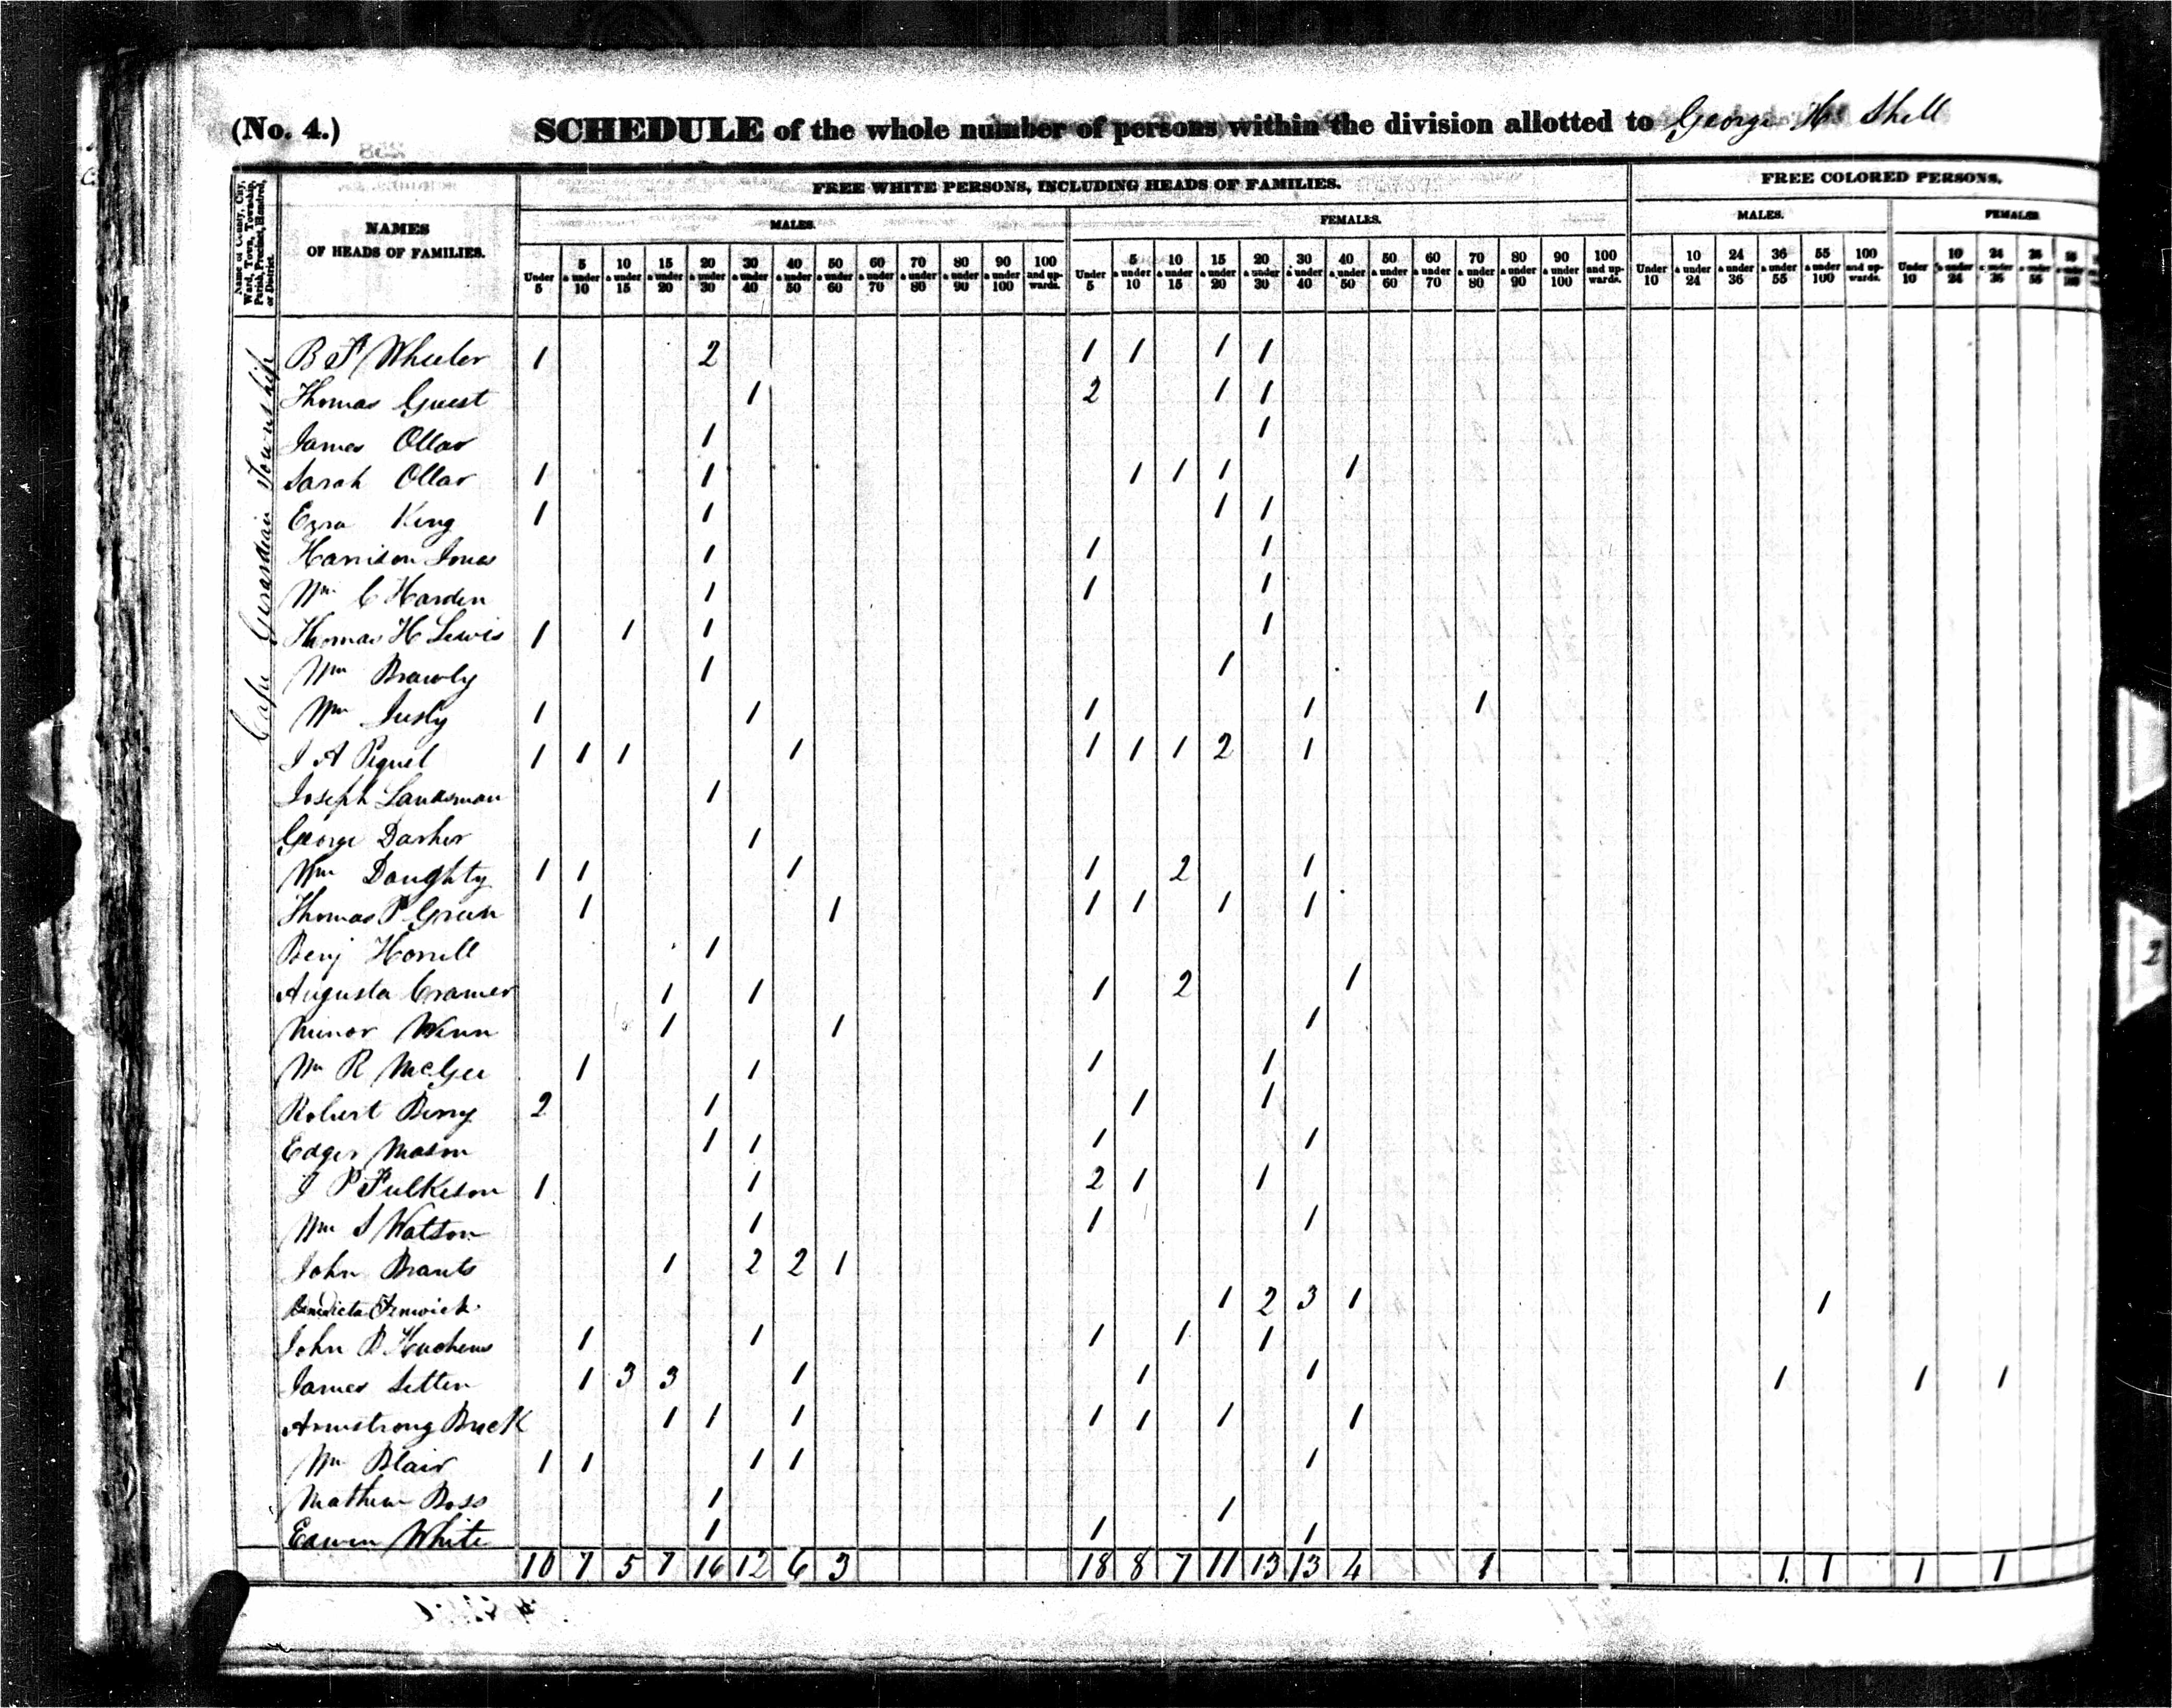 (No. 4.) SCHEDULE of the whole number of persons within the division allotted to George H Shell
Name of County, City, Ward, Town, Township, Parish, Precinct, Hundred, or District.
NAMES OF HEADS OF FAMILIES.
FREE WHITE PERSONS, INCLUDING HEADS OF FAMILIES.
FREE COLORED PERSONS.
MALES. FEMALES. MALES. FEMALES
Under 5 5 & under 10 10 & under 15 15 & under 20 20 & under 30 30 & under 40 40 & under 50 50 & under 60 60 & under 70 70 & under 80 80 & under 90 90 & under 100 100 and upwards. Under 5 5 & under 10 10 & under 15 15 & under 20 20 & under 30 30 & under 40 40 & under 50 50 & under 60 60 & under 70 70 & under 80 80 & under 90 90 & under 100 100 and upwards. Under 10 10 & under 24 24 & under 36 36 & under 55 55 & under 100 100 and upwards. Under 10 10 & under 24 24 & under 36 36 & under 55
Cape Girardeau Township
B F Wheeler 1 2 1 1 1 1
Thomas Guest 1 2 1 1
James Ollar 1 1
Sarah Ollar 1 1 1 1 1 1
Ezra King 1 1 1 1
Harrison Jones 1 1 1
Wm C Harden 1 1 1
Thomas H Lewis 1 1 1 1
Wm Brawly 1 1
Wm 1 1 1 1 1
J A 1 1 1 1 1 1 1 2 1
Joseph Landsman 1
George 1
Wm Doughty 1 1 1 1 2 1
Thomas P Green 1 1 1 1 1 1
Benj Horrell 1
Augusta Cramer 1 1 1 2 1
Minor Winn 1 1 1
Wm R McGee 1 1 1 1
Robert Berry 2 1 1 1
Edger Mason 1 1 1 1
J P Fulkeson 1 1 2 1 1
Wm S Watson 1 1 1
John 1 2 2 1
Benedicta Fenwick 1 2 3 1 1
John B 1 1 1 1 1
James 1 3 3 1 1 1 1 1 1
Armstrong Buck 1 1 1 1 1 1 1
Wm Blair 1 1 1 1 1
Mathew Boss 1 1
Edwin White 1 1 1
10 7 5 7 16 12 6 3 18 8 7 11 13 13 4 1 1 1 1 1
2